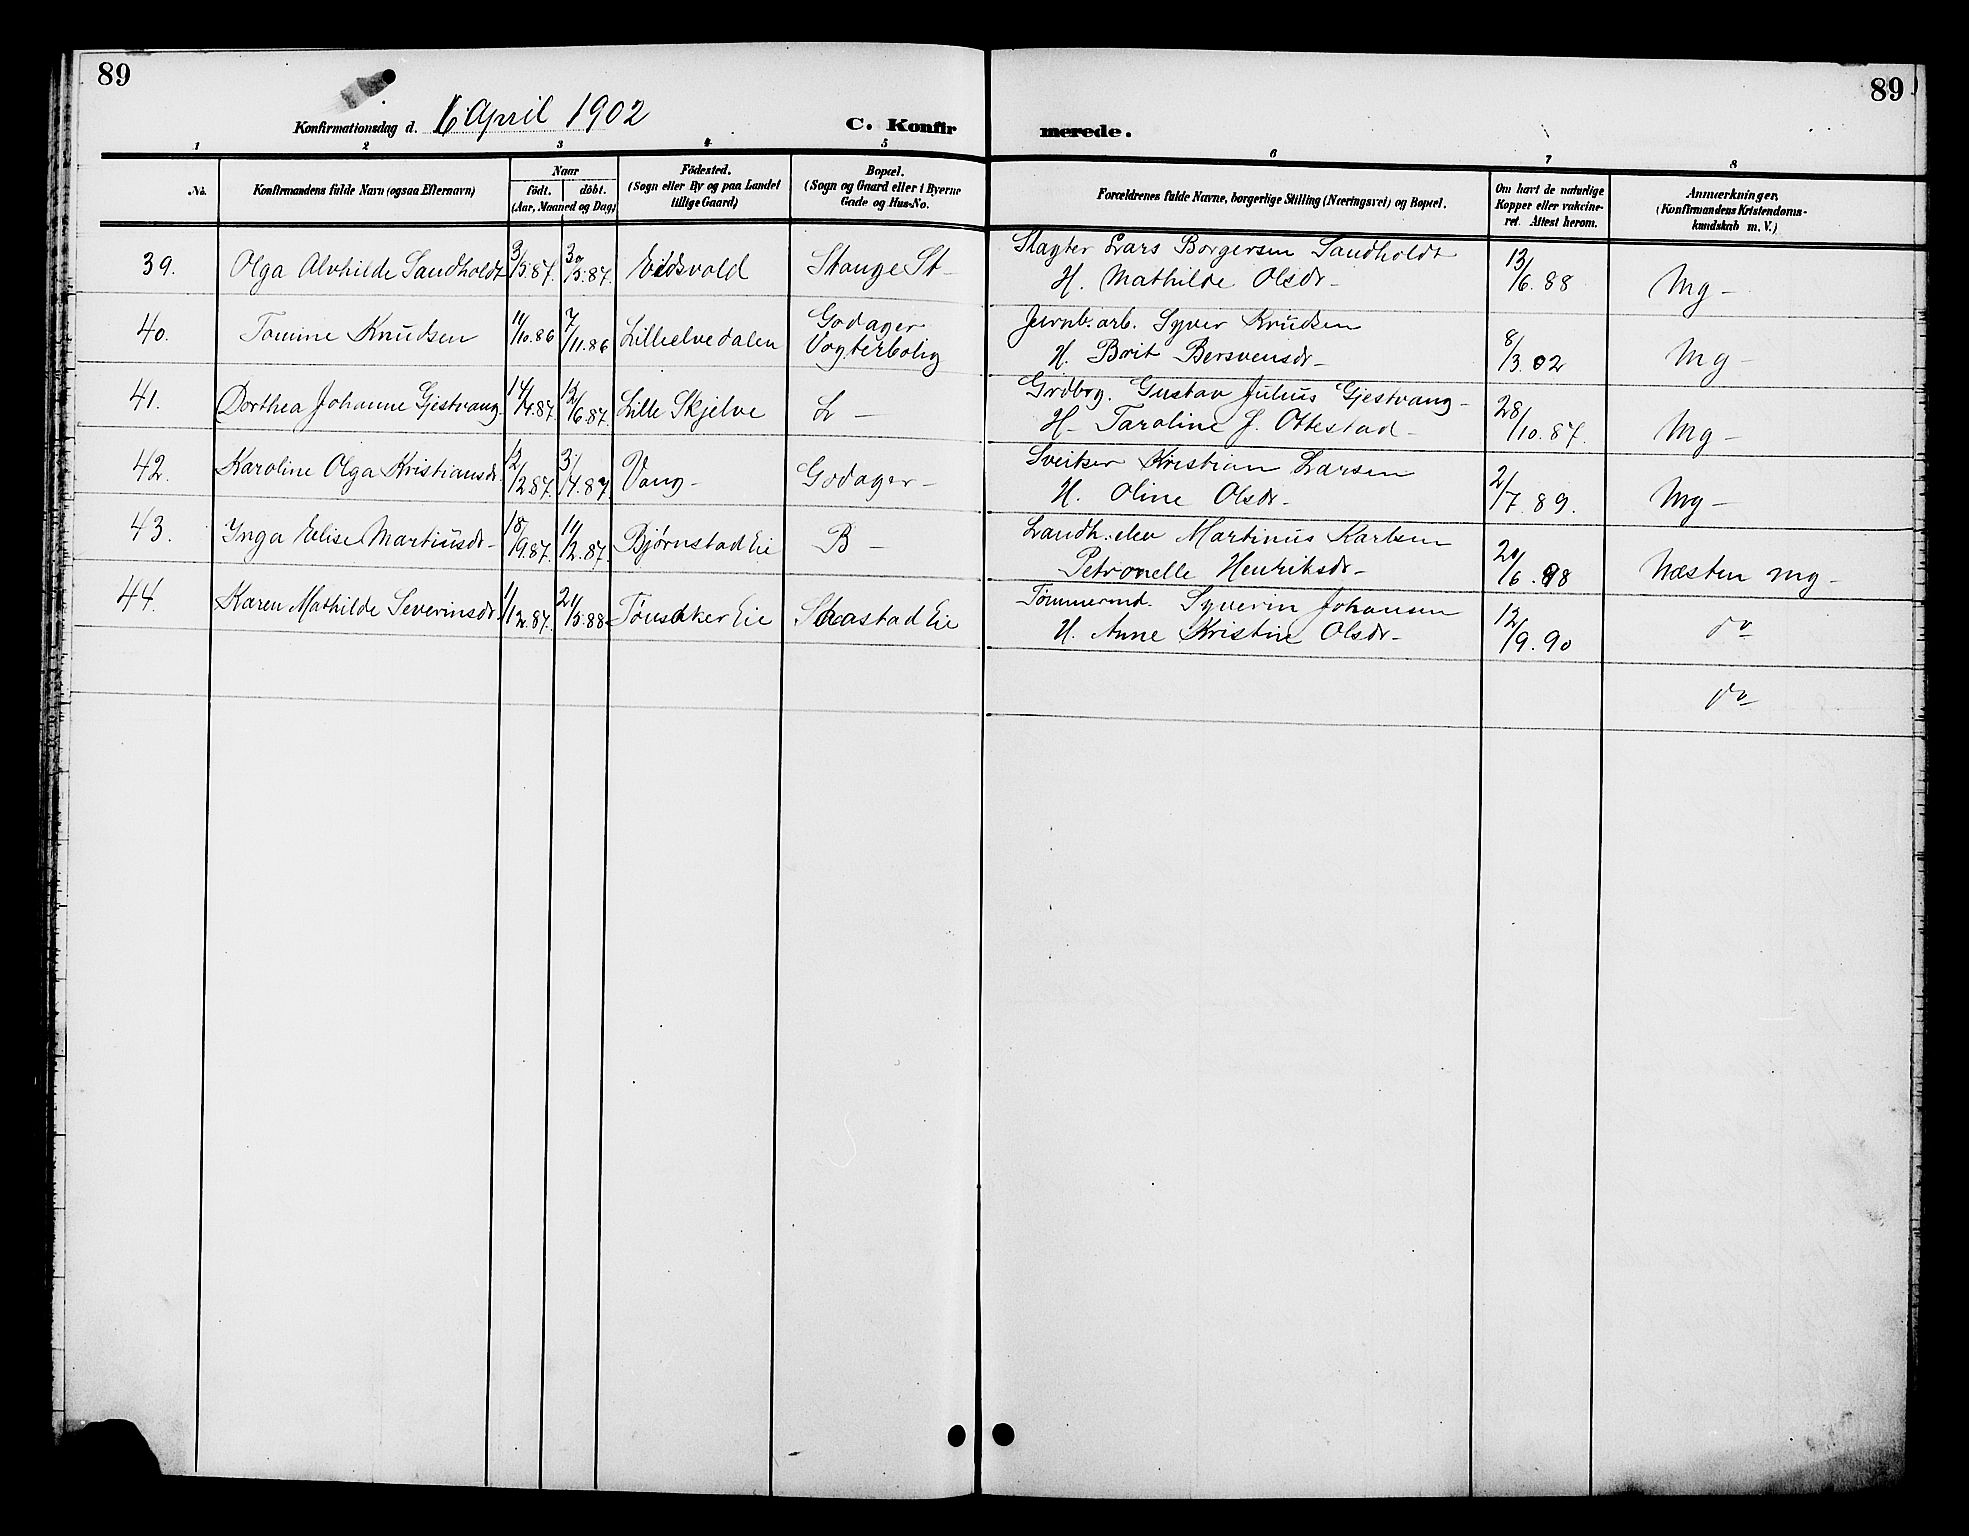 89
89
Konfirmationsdag d. 6 April 1902
C. Konfirmerede.
1 2 3 4 5 6 7 8
No.
Konfirmandens fulde Navn (ogsaa Efternavn)
Naar
födt. döbt.
(Aar, Maaned og Dag)
Födested.
(Sogn eller By og paa Landet
tillige Gaard)
Bopæl.
(Sogn og Gaard eller i Byerne
Gade og Hus-No.
Forældrenes fulde Navne, borgerlige Stilling (Næringsvei) og Bopæl.
Om havt de naturlige
Kopper eller vakcine-
ret. Attest herom.
Anmærkninger,
(Konfirmandens Kristendoms-
kundskab m. V.)
39. Olga Alvhilde Sandholdt 3/5.87. 30/5.87. Eidsvold Stange St- Slagter Lars Borgersen Sandholdt 13/6.88 Mg-
H. Mathilde Olsdr-
40. Tomine Knudsen 11/10.86 7/11.86 Lilleelvedalen Godager Jernb.arb. Syver Knudsen 8/3.02 Mg-
Vogterbolig H. Brit Bersvensdr-
41. Dorthea Johanne Gjestvang 14/4.87 12/6.87. Lille Skjelve L- Grdbrg. Gustav Julius Gjestvang- 28/10.87. Mg-
H- Taroline J. Ottestad-
42. Karoline Olga Kristiansdr. 12/2.87. 3/4.87 Vang- Godager- Sveitser Kristian Larsen 2/7 89. Mg-
H. Oline Olsdr-
43. Inga Elise Martinusdr- 18/9.87. 11/12.87. Bjørnstad Eie B- Landh.elev Martinus Karlsen Næsten mg-
Petronelle Henriksdr-
44. Karen Mathilde Severinsdr. 1/12.87. 21/5.88 Tønsaker Eie Skaastad Eie Tømmermd. Syverin Johansen 12/9.90 do
H. Anne Kristine Olsdr-
do